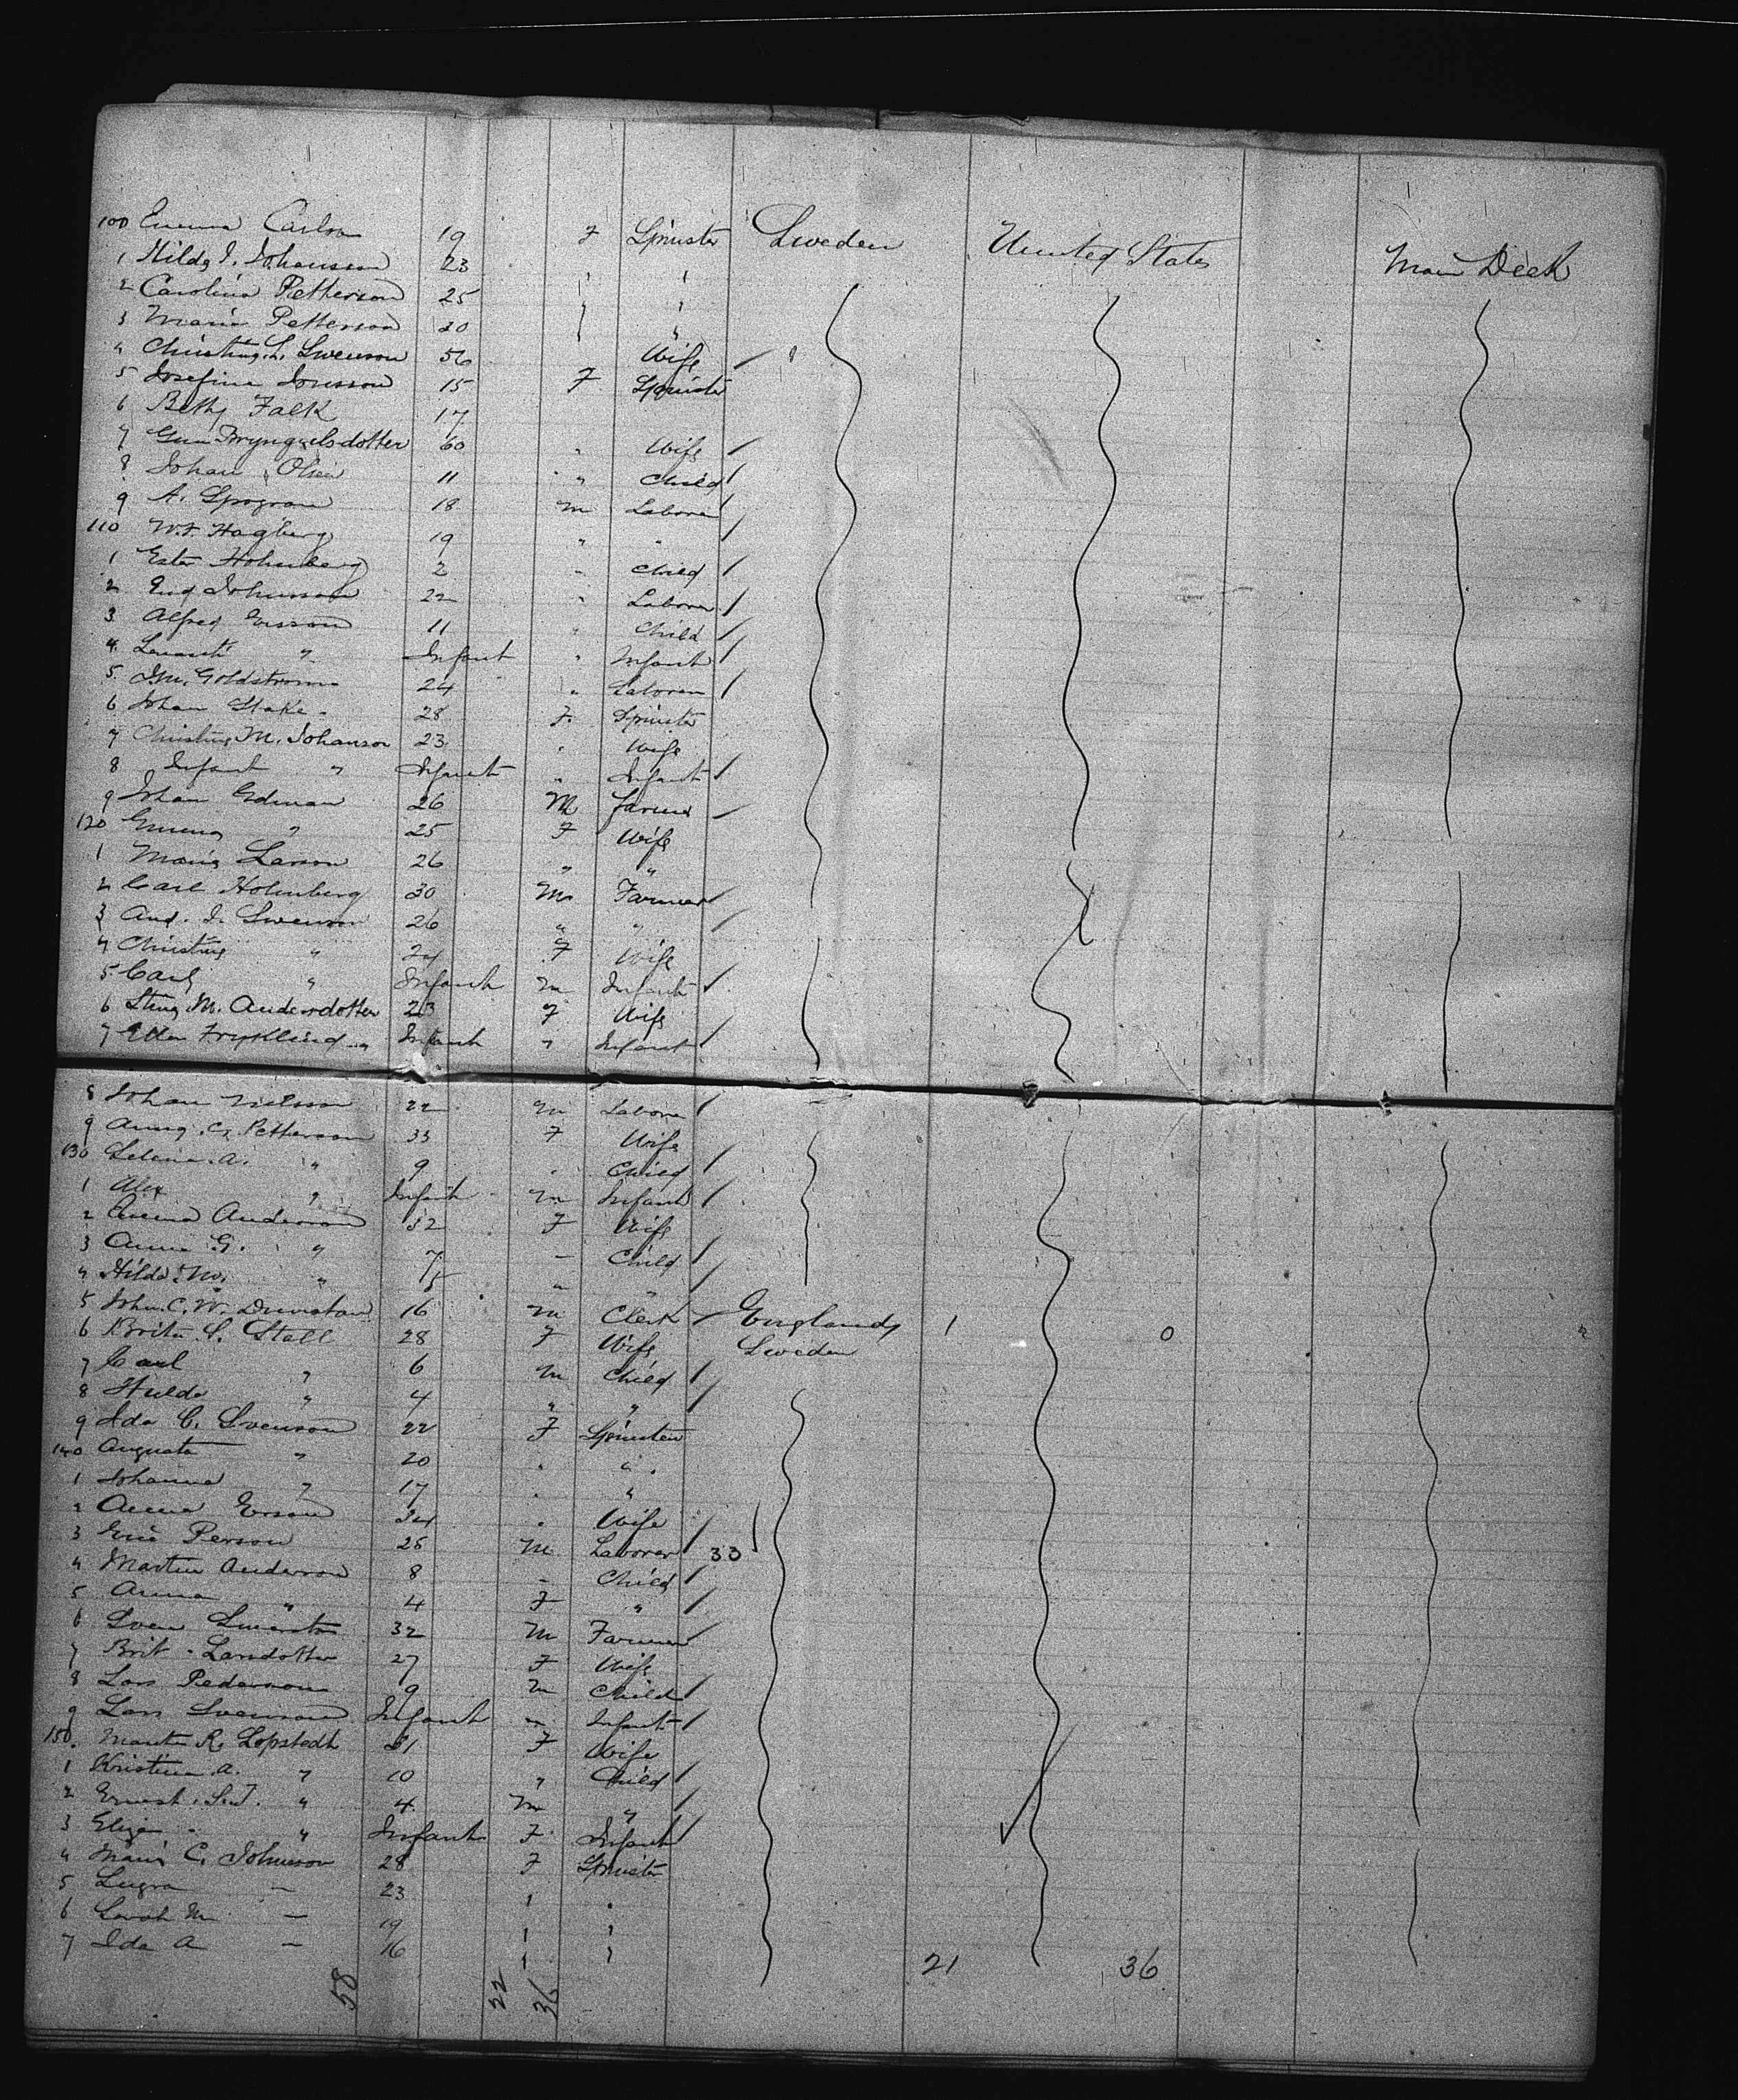 100 Emma Carlson 19 F Spinster Sweden United States Main Deck
1 Hilda I. Johansson 23 " "
2 Carolina Petterson 25 " "
3 Maria Petterson 20 " "
4 Christina L. Swenson 56 Wife
5 Josefina Jonsson 15 F Spinster
6 Betty Falk 17
7 Brynguelsdotter 60 " Wife
8 Johan Olsen 11 " Child
9 A. 18 m Laborer
110 W.F. Hagberg 19 " "
1 Ester Holmberg 2 " Child
2 Johnsson 22 " Laborer
3 Alfred Ersson 11 " Child
4 " Infant " Infant
5 Goldstrom 24 " Laborer
6 Johan Stake 28 F Spinster
7 Christina M. Johanson 23 " Wife
8 Infant " Infant " Infant
9 Johan Edman 26 M farmer
120 Emma " 25 F Wife
1 Maria Larson 26 " "
2 Carl Holmberg 30 M Farmer
3 Aug. J. Swenson 26 " "
4 Christina " 24 F Wife
5 Carl " Infant m Infant
6 Stina M. Andersdotter 23 F Wife
7 Ellen Frykland " Infant " Infant
8 Johan Nelsson 22 m Laborer
9 Anna C. Petterson 33 F Wife
130 Selena A. " 9 " Child
1 Alex " Infant m Infant
2 Anna Anderson 32 F Wife
3 Anna G. " 7 " Child
4 Hilda M. " 5 " "
5 John C. W. Dunstan 16 m Clerk England 1 0
6 Brita S. Stall 28 F Wife Sweden
7 Carl " 6 m Child
8 Hulda " 4 " "
9 Ida C. Svenson 22 F Spinster
140 Augusta " 20 " "
1 Johanna " 17 " "
2 Anna Erson 34 " Wife
3 Eric Person 25 M Laborer 33
4 Martin Anderson 8 " Child
5 Anna " 4 F "
6 Sven 32 M Farmer
7 Brit Larsdotter 27 F Wife
8 Lars Pederson 9 m Child
9 Lars Svenson Infant " Infant
150 R. Lofstedt 31 F Wife
1 Kristina A. " 10 " Child
2 Ernest " 4 M "
3 Eliza " Infant F Infant
4 Maria C. Johnson 28 F Spinster
5 — 23 " "
6 Sarah M — 19 " "
7 Ida A — 16 " " 21 36
58 22 36